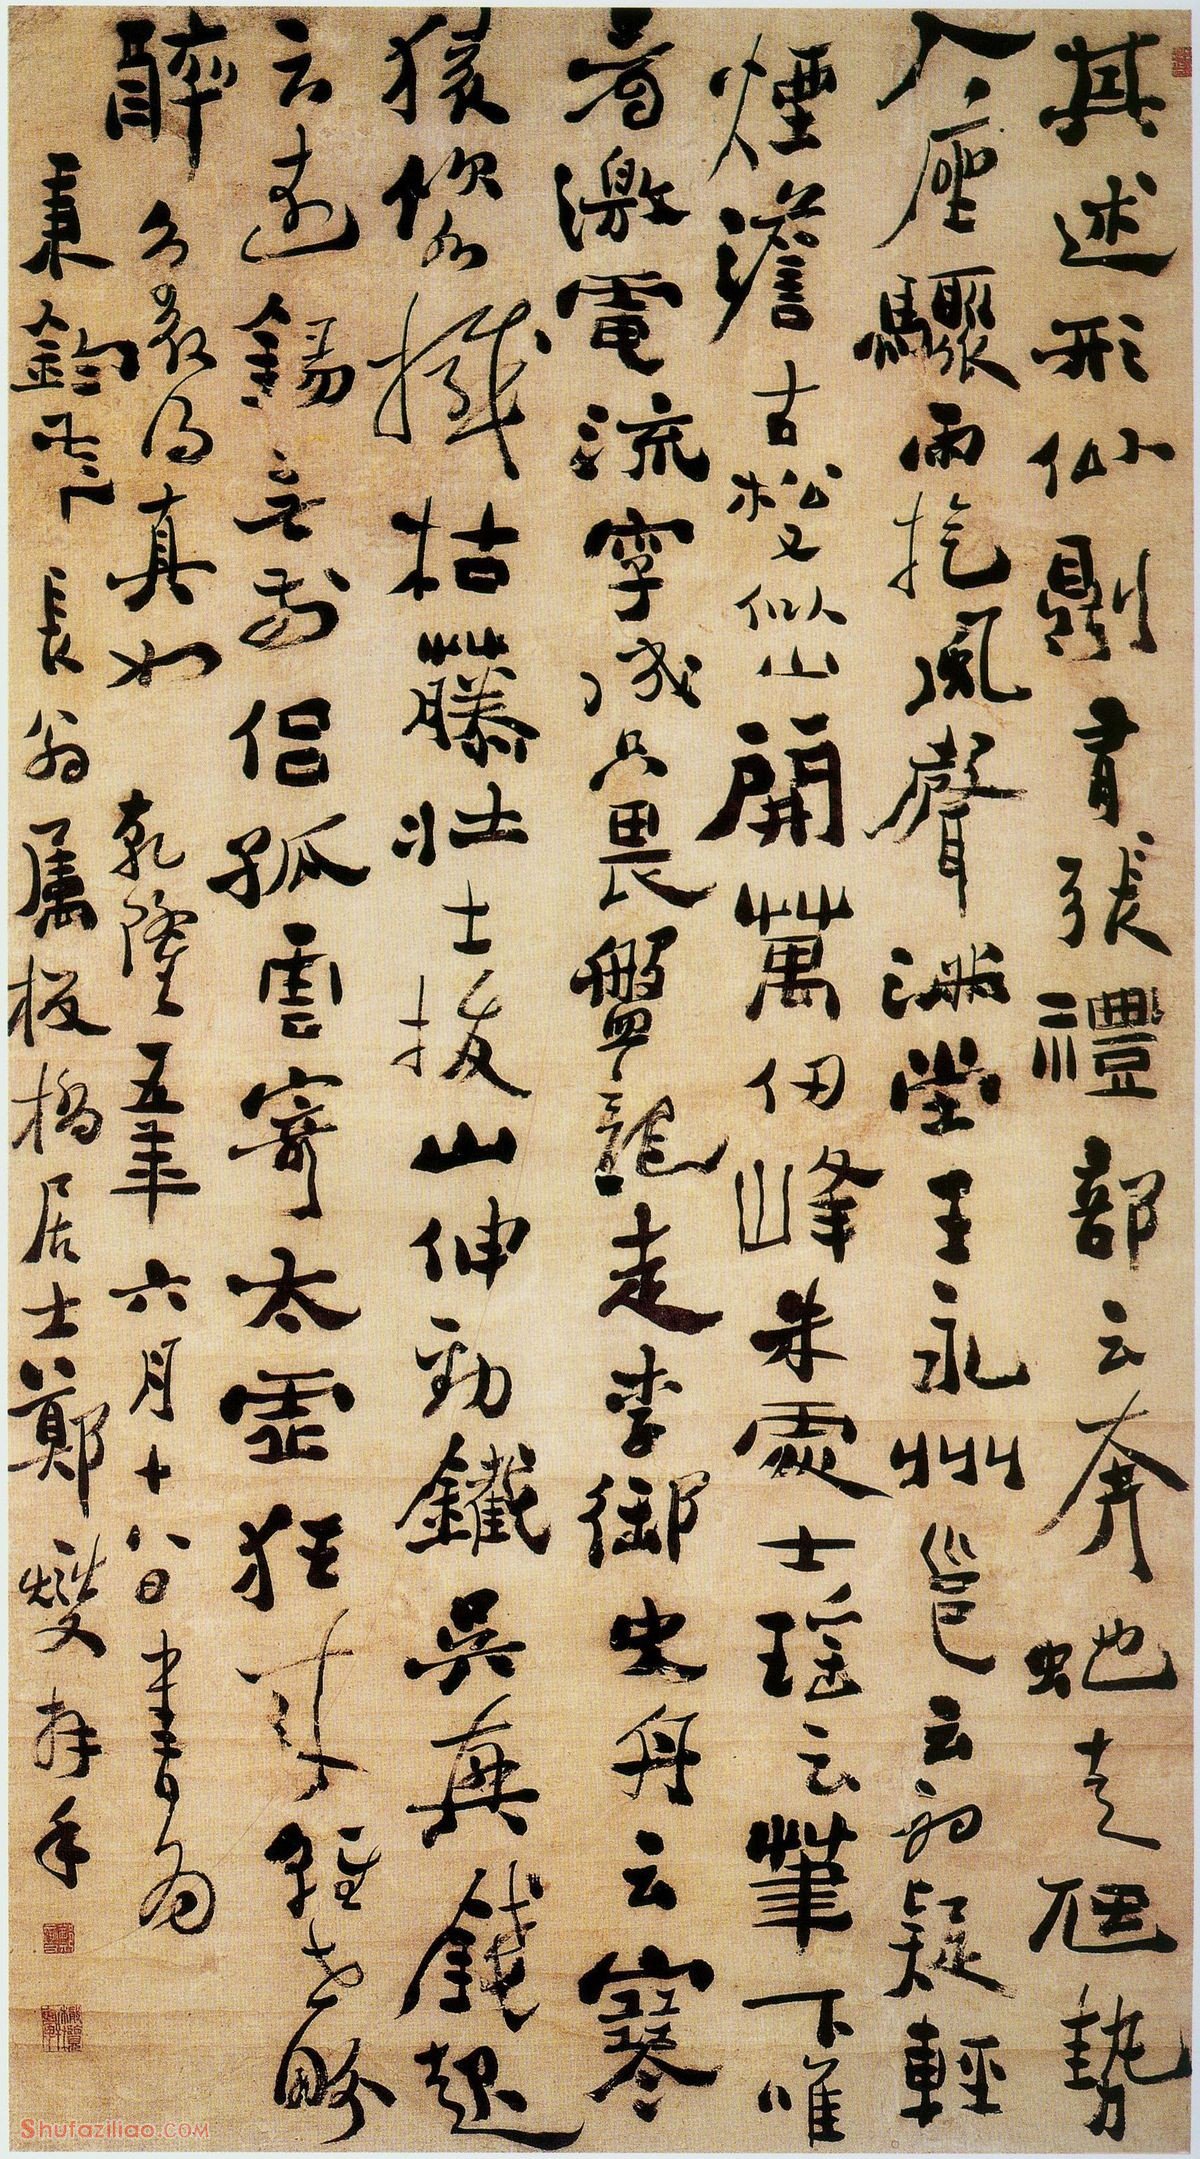 其述形似則有張澧部云奔蛇走虺勢
入座驟雨旋風聲滿堂王永州邕云初疑輕
煙澹古松又似山開萬仞峰朱處士瑶云筆下唯
看激電流字成只畏盤龍走李御史舟云寒
猿飲水撼枯藤壯士拔山伸勁鐵吳興錢起
云遠錫無前侶孤雲寄太虛狂來輕世界
醉裏得真如 乾隆五年六月十八日書為
秉鈞長翁屬板橋居士鄭燮拜手
Shufaziliao.COM